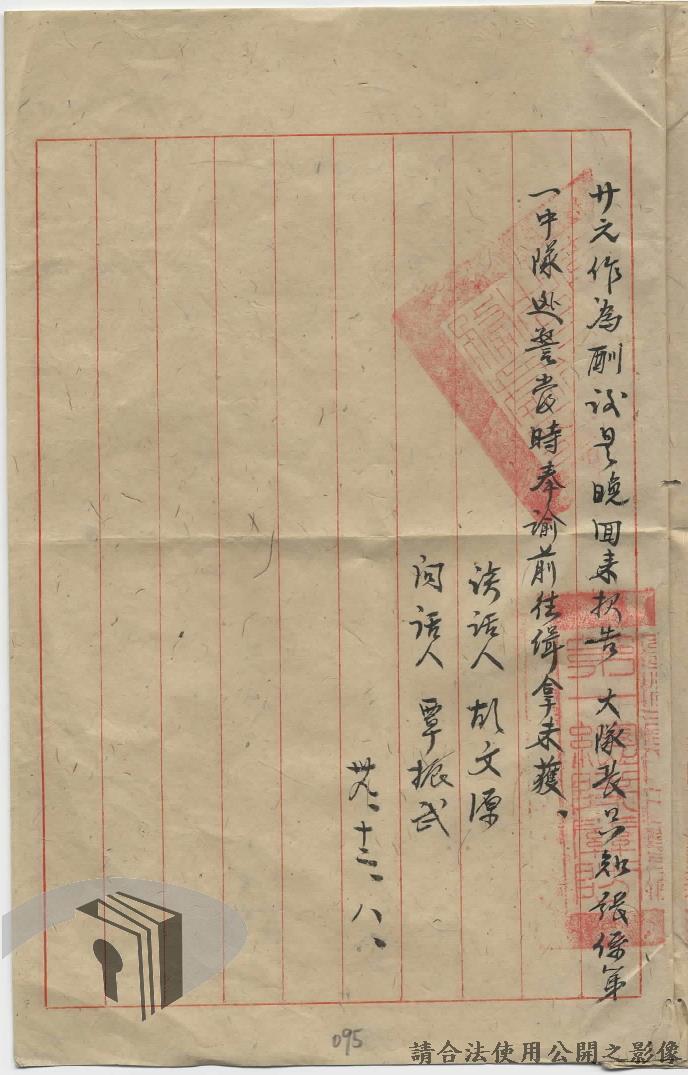 廿元作為酬謝是晚回来报告 大隊長只知張係第
一中隊迯警當時奉諭前往缉拿未獲、
談話人 胡文源
问話人 覃振武
卅九、十二、八、
095
請合法使用公開之影像